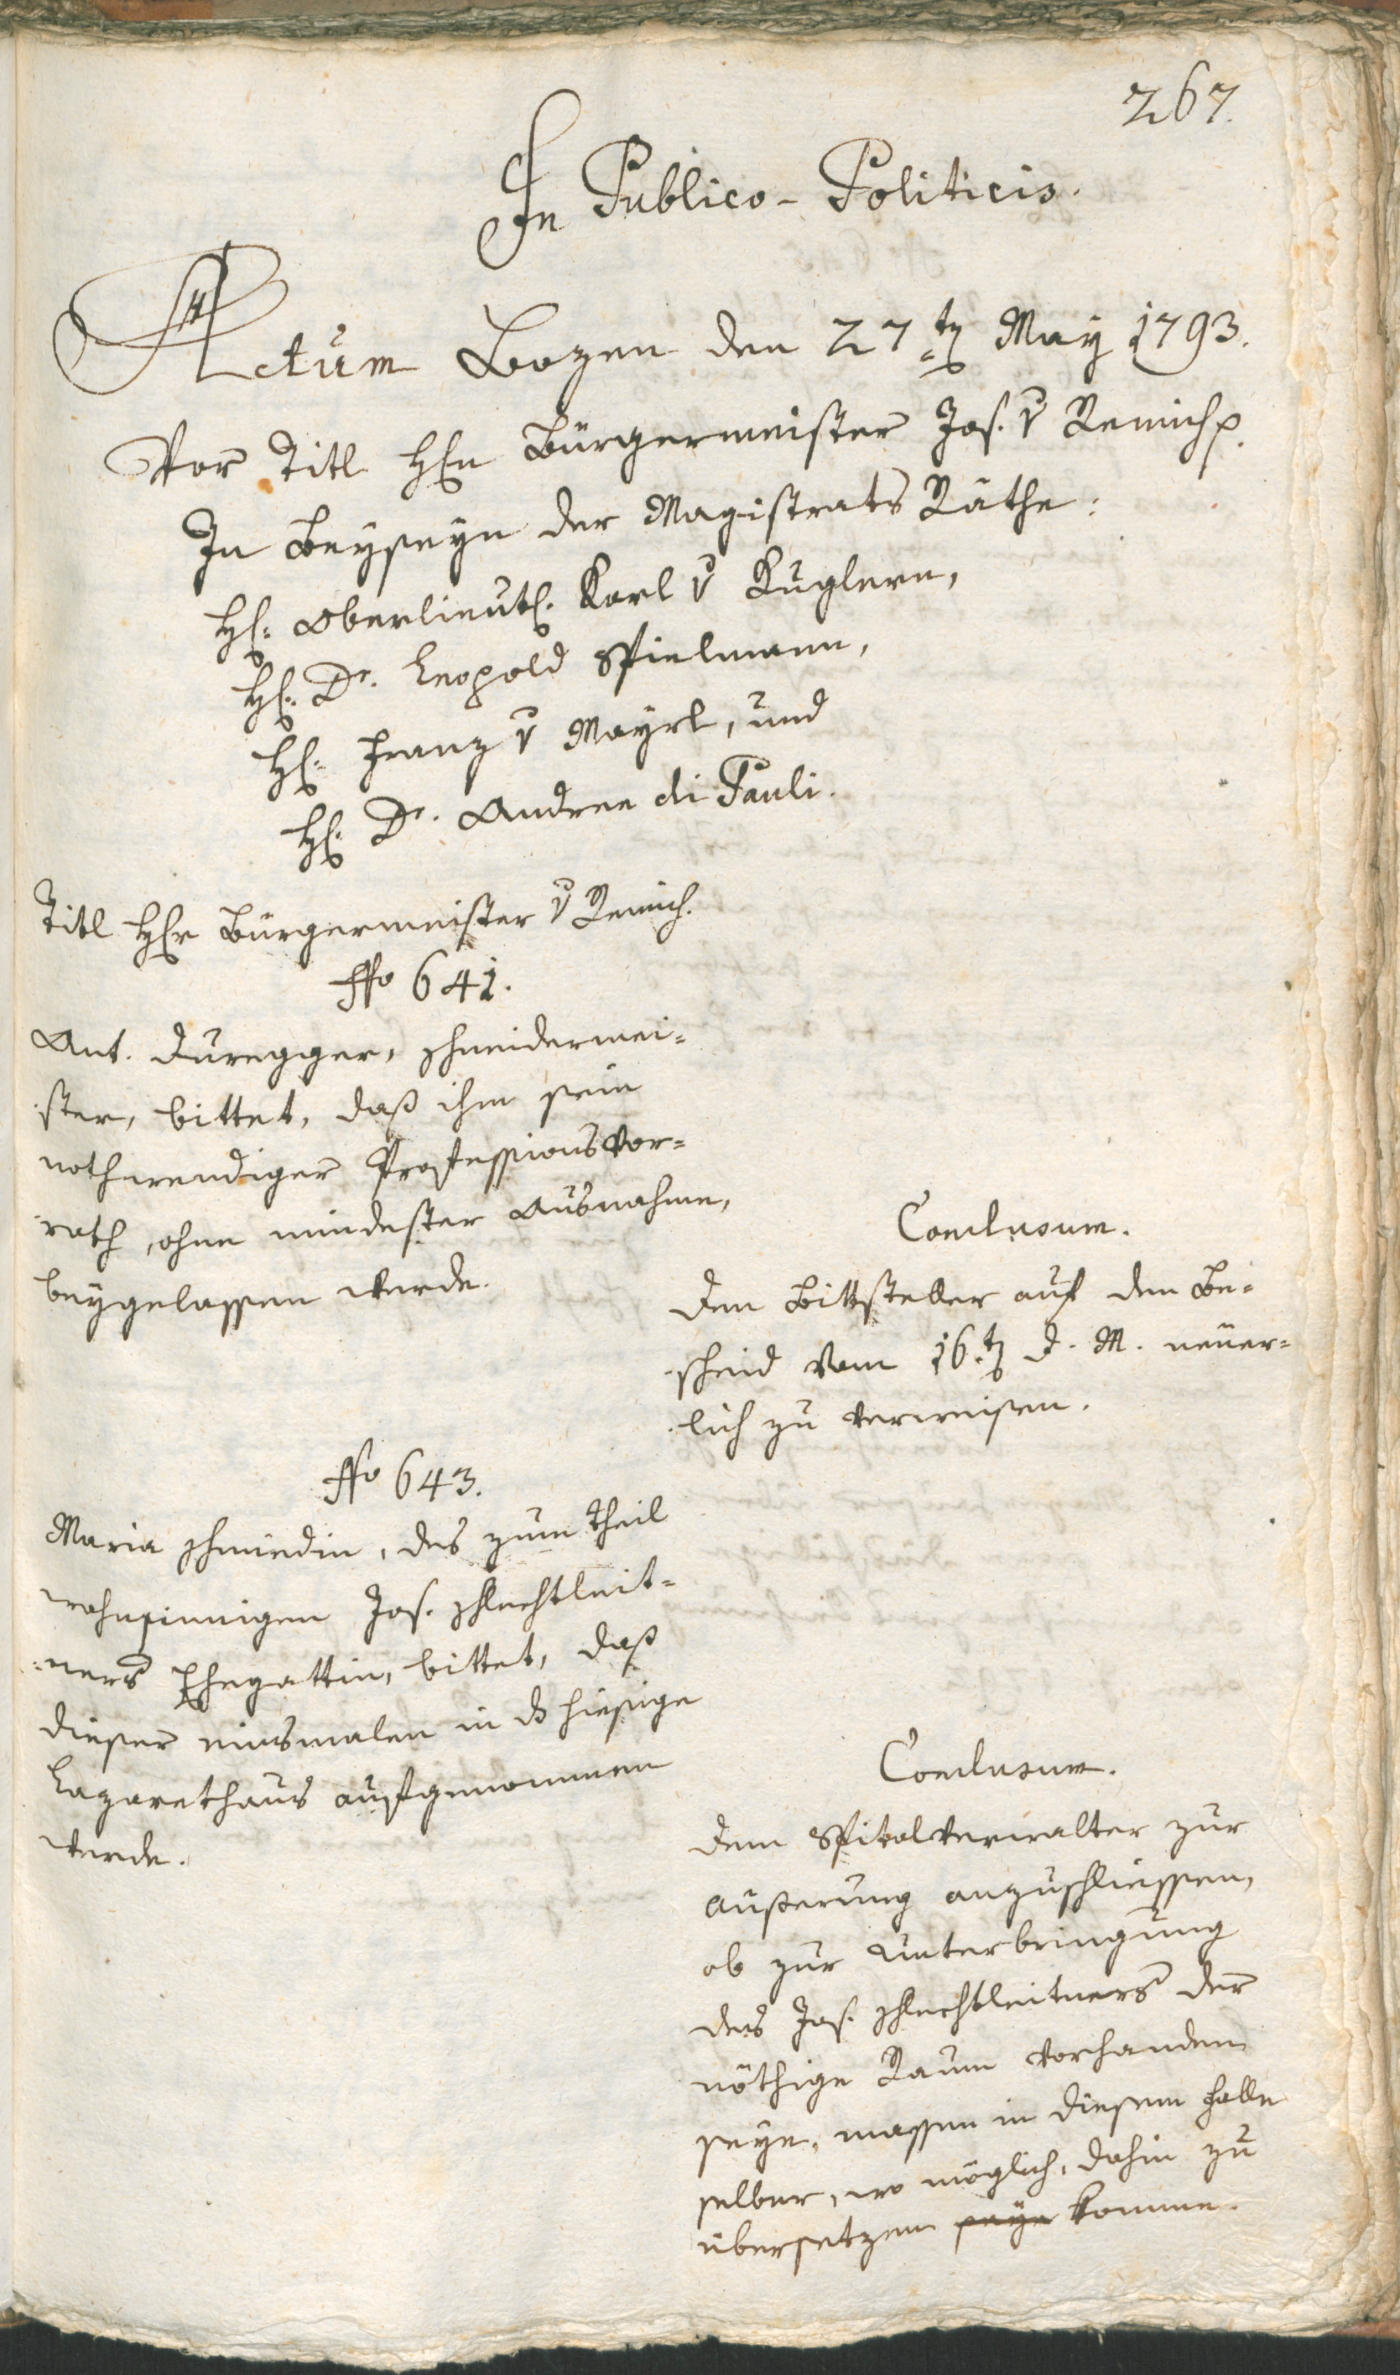 267.
In Publico-Politicis.
Actum Bozen den 27.ten May 1793.
Vor Titl Hrn Bürgermeister Jos. v Remich p.
In Beyseyn der Magistrats Räthe:
H: Oberlieut. Karl v Kuglern,
H: Dr. Leopold Spielmann,
H: Franz v Mayrl, und
H: Dr. Andree di Pauli.
Titl Hr Bürgermeister v Remich.
No 641.
Ant. Duregger, Schneidermei=
ster, bittet, daß ihm sein
nothwendiger Professionsvor=
rath, ohne mindester Ausnahme,
beygelassen werde.
Conclusum.
Den Bittsteller auf den Be=
scheid vom 16.ten d. M. neuer=
lich zu verweisen.
No 643.
Maria Schmiedin, des zum Theil
wahnsinnigen Jos. Schlechtleit=
ners Ehegattin, bittet, daß
dieser einsmalen in ds hiesige
Lazarethaus aufgenommen
werde.
Conclusum.
Dem Spitalverwalter zur
Äußerung anzuschliessen,
ob zur Unterbringung
des Jos. Schlechtleitners der
nöthige Raum vorhanden
seye, massen in diesem Falle
selber, wo möglich, dahin zu
übersetzen seye komme.